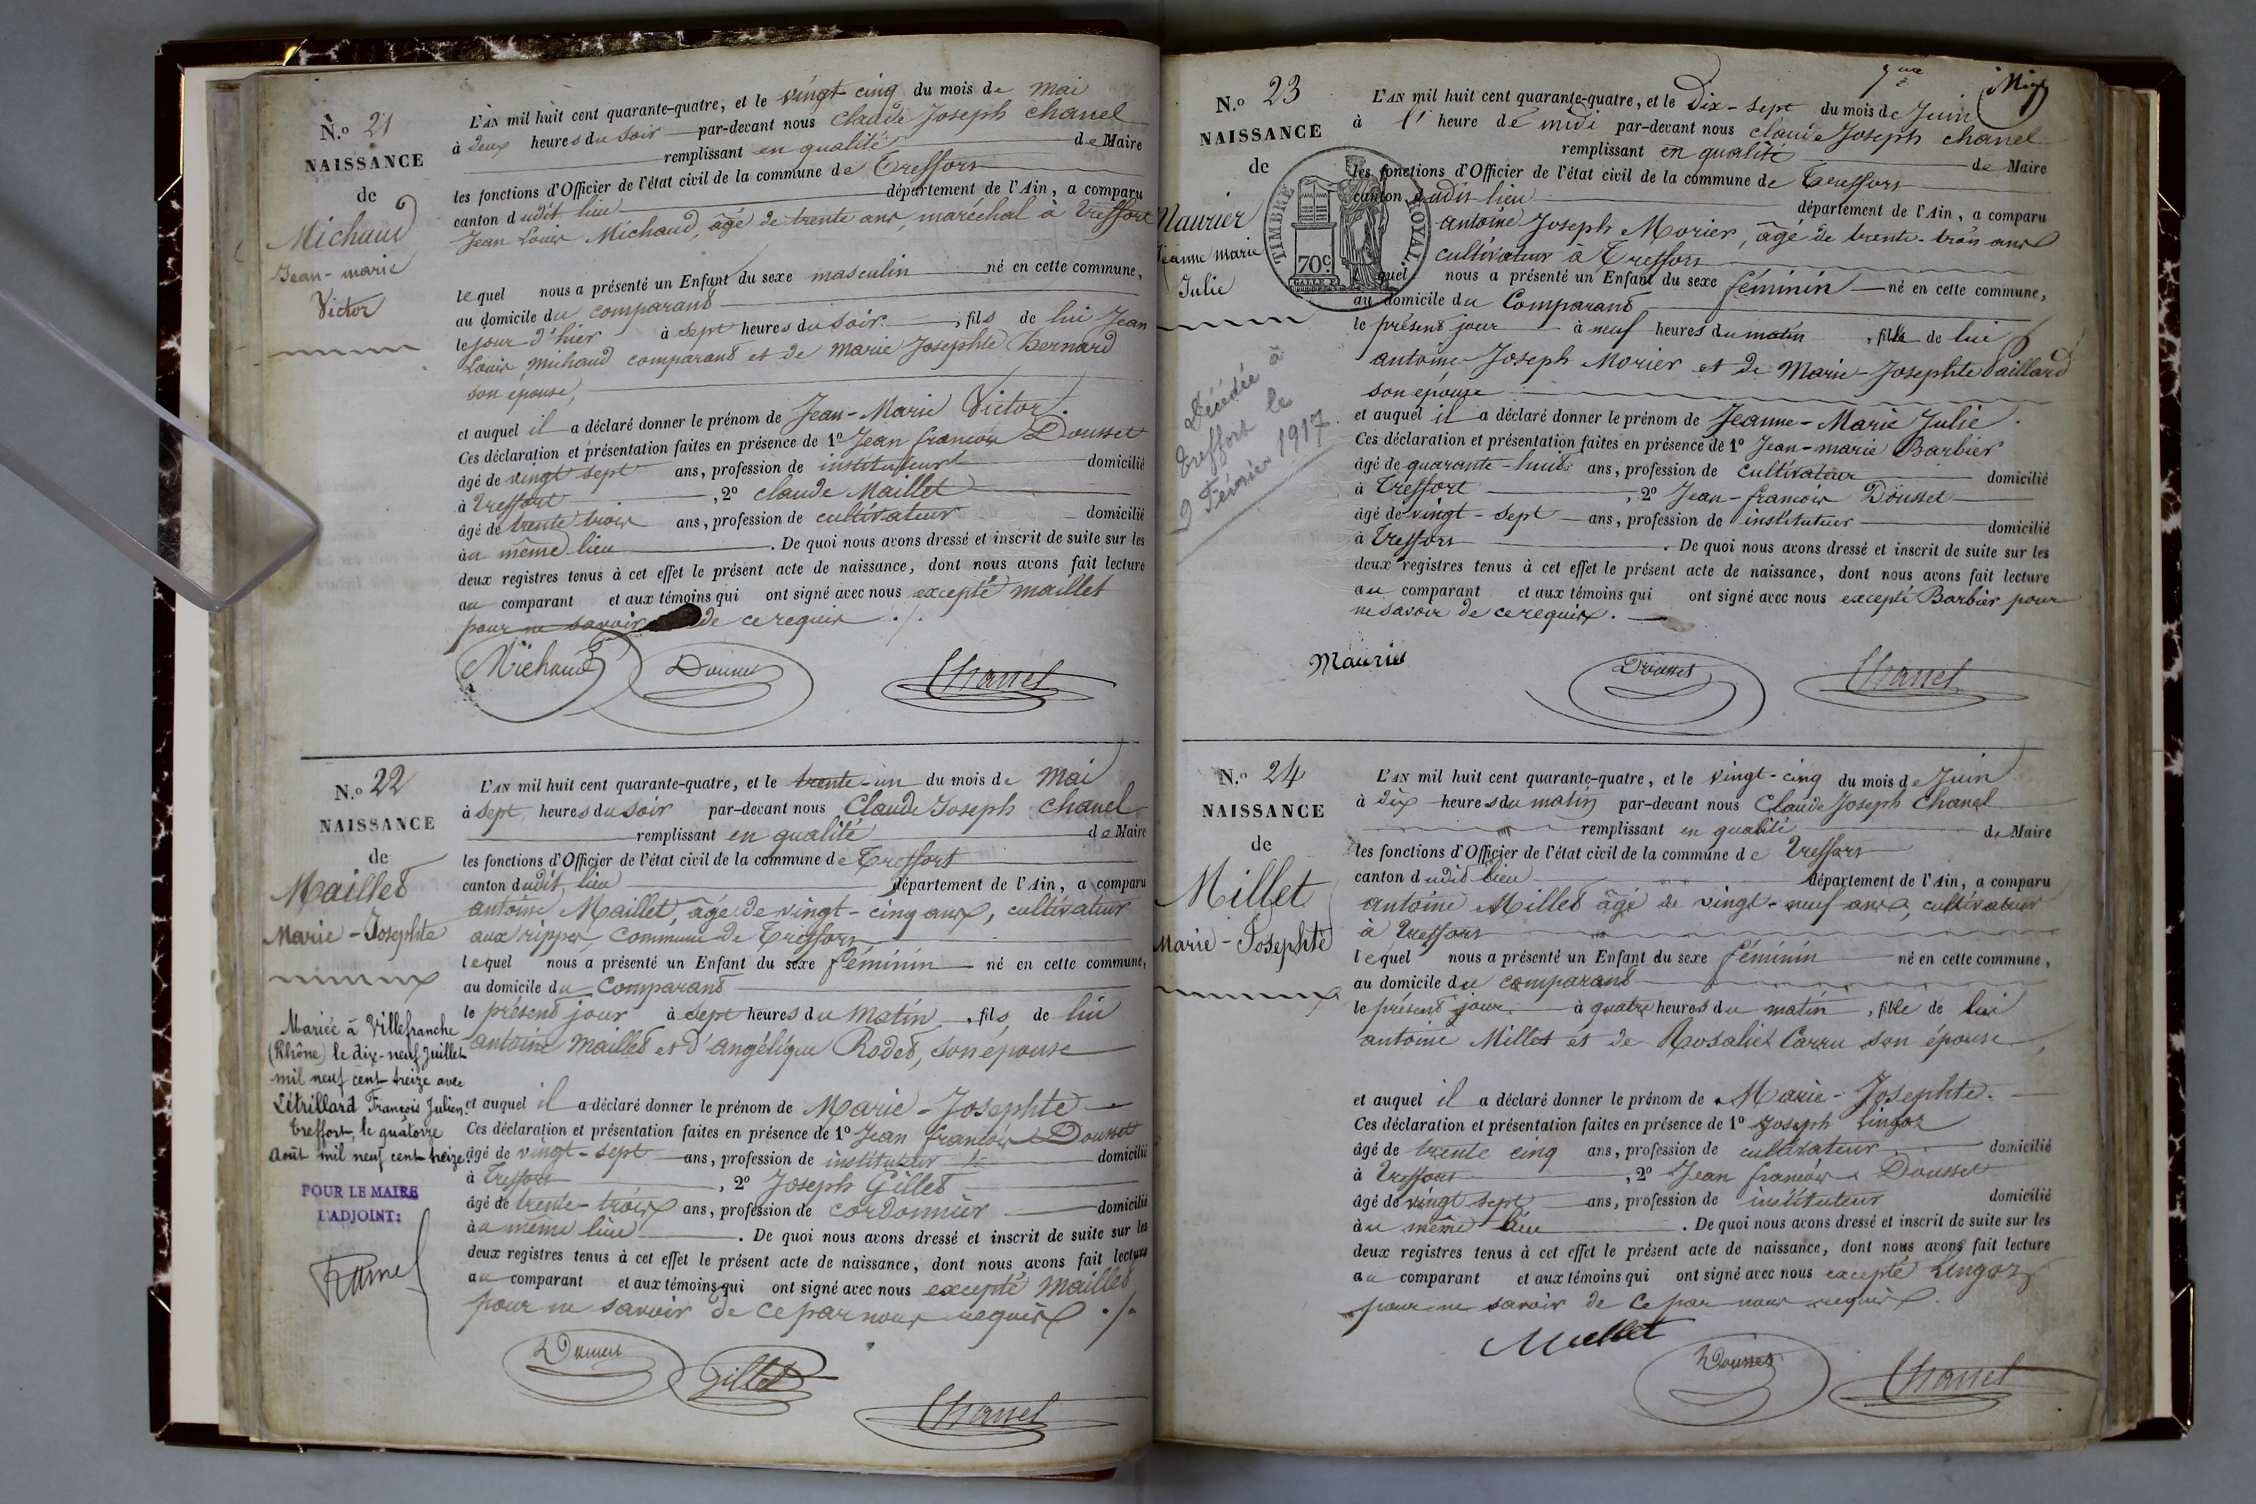 N.º 21
NAISSANCE
de
Michaud
Jean-marie
Victor
L'AN mil huit cent quarante-quatre, et le vingt cinq du mois de mai
à deux heures du soir par-devant nous Claude Joseph Chanel
remplissant en qualité de Maire
les fonctions d'Officier de l'état civil de la commune de Treffort
canton dudit lieu département de l'Ain, a comparu
Jean Louis Michaud, âgé de trente ans, maréchal à Treffort
lequel nous a présenté un Enfant du sexe masculin né en cette commune,
au domicile du comparant
le jour d'hier à sept heures du soir, fils de lui Jean
Louis michaud comparant et de marie Josephte Bernard
son épouse,
et auquel il a déclaré donner le prénom de Jean-Marie Victor.
Ces déclaration et présentation faites en présence de 1º Jean francois Dousset
âgé de vingt sept ans, profession de instituteur domicilié
à Treffort, 2º claude Maillet
âgé de trente trois ans, profession de cultivateur domicilié
au même lieu. De quoi nous avons dressé et inscrit de suite sur les
deux registres tenus à cet effet le présent acte de naissance, dont nous avons fait lecture
au comparant et aux témoins qui ont signé avec nous excepté maillet
pour ne savoir de ce requis ./.
Michaud Dousset Chanel
N.º 22
NAISSANCE
de
Maillet
Marie-Josephte
Mariée à Villefranche
(Rhône) le dix-neuf Juillet
mil neuf cent treize avec
Létrillard François Julien.
Treffort, le quatorze
Août mil neuf cent treize.
POUR LE MAIRE
L'ADJOINT:
L'AN mil huit cent quarante-quatre, et le trente-un du mois de mai
à sept heures du soir par-devant nous Claude Joseph Chanel
remplissant en qualité de Maire
les fonctions d'Officier de l'état civil de la commune de Treffort
canton dudit lieu département de l'Ain, a comparu
antoine Maillet, âgé de vingt-cinq ans, cultivateur
aux rippes commune de Treffort
lequel nous a présenté un Enfant du sexe féminin né en cette commune,
au domicile du comparant
le présent jour à sept heures du matin, fils de lui
antoine Maillet et d'angélique Rodet, son épouse
et auquel il a déclaré donner le prénom de Marie-Josephte
Ces déclaration et présentation faites en présence de 1º Jean francois Dousset
âgé de vingt-sept ans, profession de instituteur domicilié
à Treffort, 2º Joseph Gillet
âgé de trente-trois ans, profession de cordonnier domicilié
au même lieu. De quoi nous avons dressé et inscrit de suite sur les
deux registres tenus à cet effet le présent acte de naissance, dont nous avons fait lecture
au comparant et aux témoins qui ont signé avec nous excepté Maillet
pour ne savoir de ce par nous requis ./.
Dousset Gillet
Chanel
N.º 23
NAISSANCE
de
Maurier
Jeanne marie
Julie
TIMBRE ROYAL
70c.
Décédée à
Treffort le
9 Février 1917
L'AN mil huit cent quarante-quatre, et le Dix-sept du mois de Juin
à l' heure de midi par-devant nous claude Joseph chanel
remplissant en qualité de Maire
les fonctions d'Officier de l'état civil de la commune de Treffort
canton dudit lieu département de l'Ain, a comparu
antoine Joseph Morier, âgé de trente-trois ans
cultivateur à Treffort
quel nous a présenté un Enfant du sexe féminin né en cette commune,
au domicile du Comparant
le présent jour à neuf heures du matin, fille de lui
antoine Joseph Morier et de Marie-Josephte Paillard
son épouse
et auquel il a déclaré donner le prénom de Jeanne-Marie Julie.
Ces déclaration et présentation faites en présence de 1º Jean-marie Barbier
âgé de quarante-huit ans, profession de cultivateur domicilié
à Treffort, 2º Jean-francois Dousset
âgé de vingt-sept ans, profession de instituteur domicilié
à Treffort. De quoi nous avons dressé et inscrit de suite sur les
deux registres tenus à cet effet le présent acte de naissance, dont nous avons fait lecture
au comparant et aux témoins qui ont signé avec nous excepté Barbier pour
ne savoir de ce requis.
Maurier Dousset Chanel
N.º 24
NAISSANCE
de
Millet
Marie-Josephte
L'AN mil huit cent quarante-quatre, et le vingt-cinq du mois de Juin
à dix heures du matin par-devant nous Claude Joseph Chanel
remplissant en qualité de Maire
les fonctions d'Officier de l'état civil de la commune de Treffort
canton dudit lieu département de l'Ain, a comparu
antoine Millet âgé de vingt-neuf ans, cultivateur
à Treffort
lequel nous a présenté un Enfant du sexe féminin né en cette commune,
au domicile du comparant
le présent jour à quatre heures du matin, fille de lui
antoine Millet et de Rosalie Carru son épouse,
et auquel il a déclaré donner le prénom de Marie-Josephte.
Ces déclaration et présentation faites en présence de 1º Joseph Lingoz
âgé de trente cinq ans, profession de cultivateur domicilié
à Treffort, 2º Jean francois Dousset
âgé de vingt sept ans, profession de instituteur domicilié
au même lieu. De quoi nous avons dressé et inscrit de suite sur les
deux registres tenus à cet effet le présent acte de naissance, dont nous avons fait lecture
au comparant et aux témoins qui ont signé avec nous excepté Lingoz
pour ne savoir de ce par nous requis.
Millet
Dousset Chanel